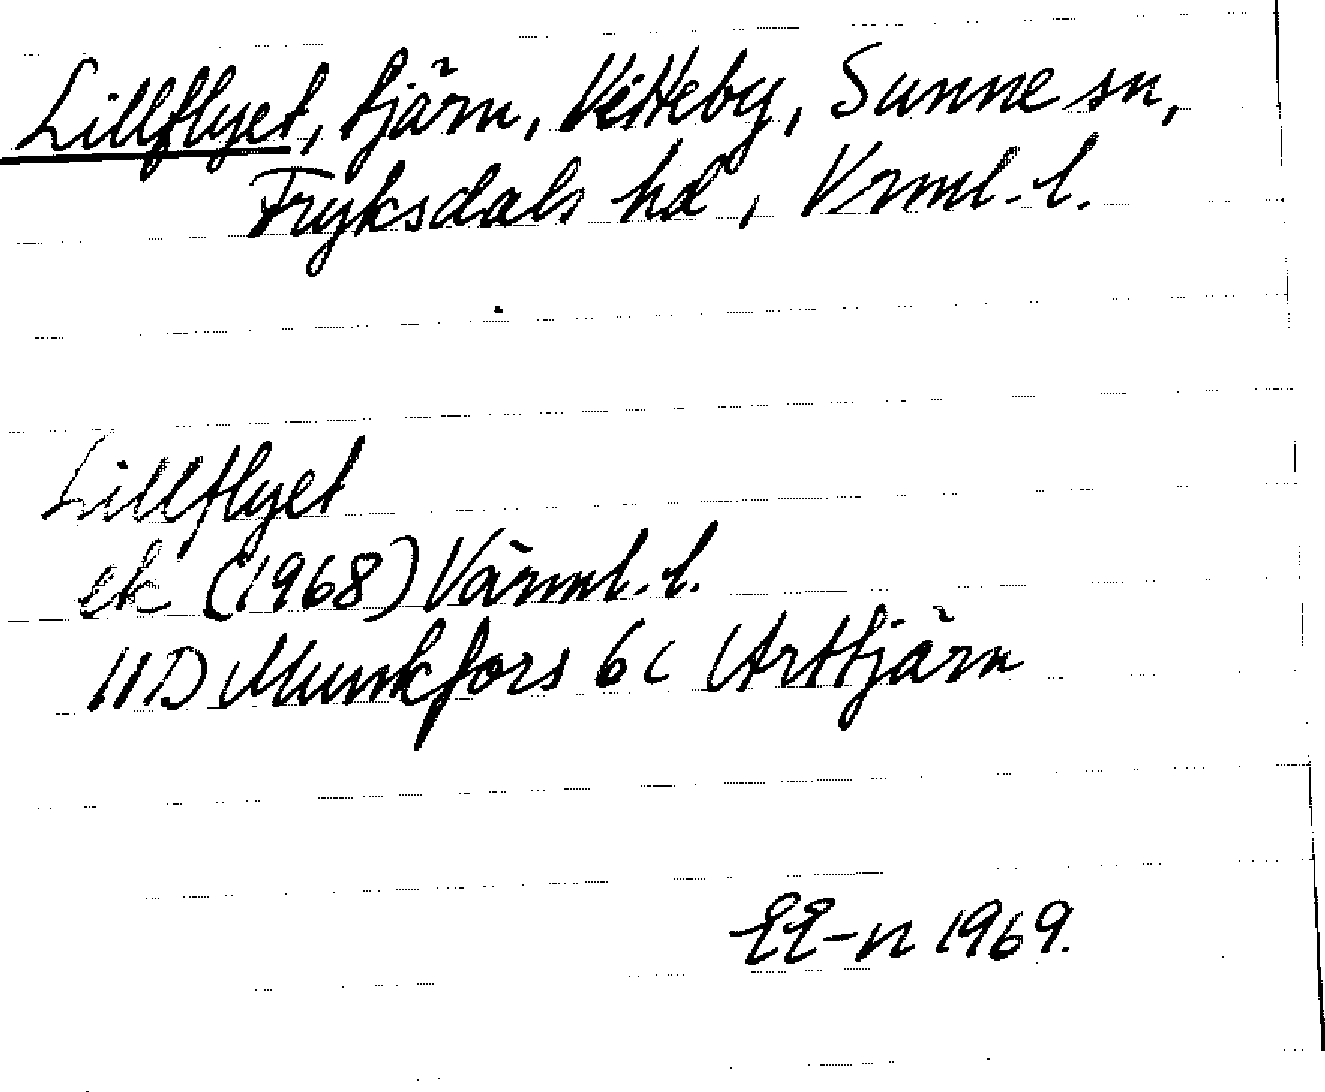 Lillflyet, tjärn, Vitteby, Sunne sn,
Fryksdals hd, Vrml. l.
Lillflyet
ek (1968) Värml. l.
11D Munkfors 6c Arttjärn
EE-n 1969.